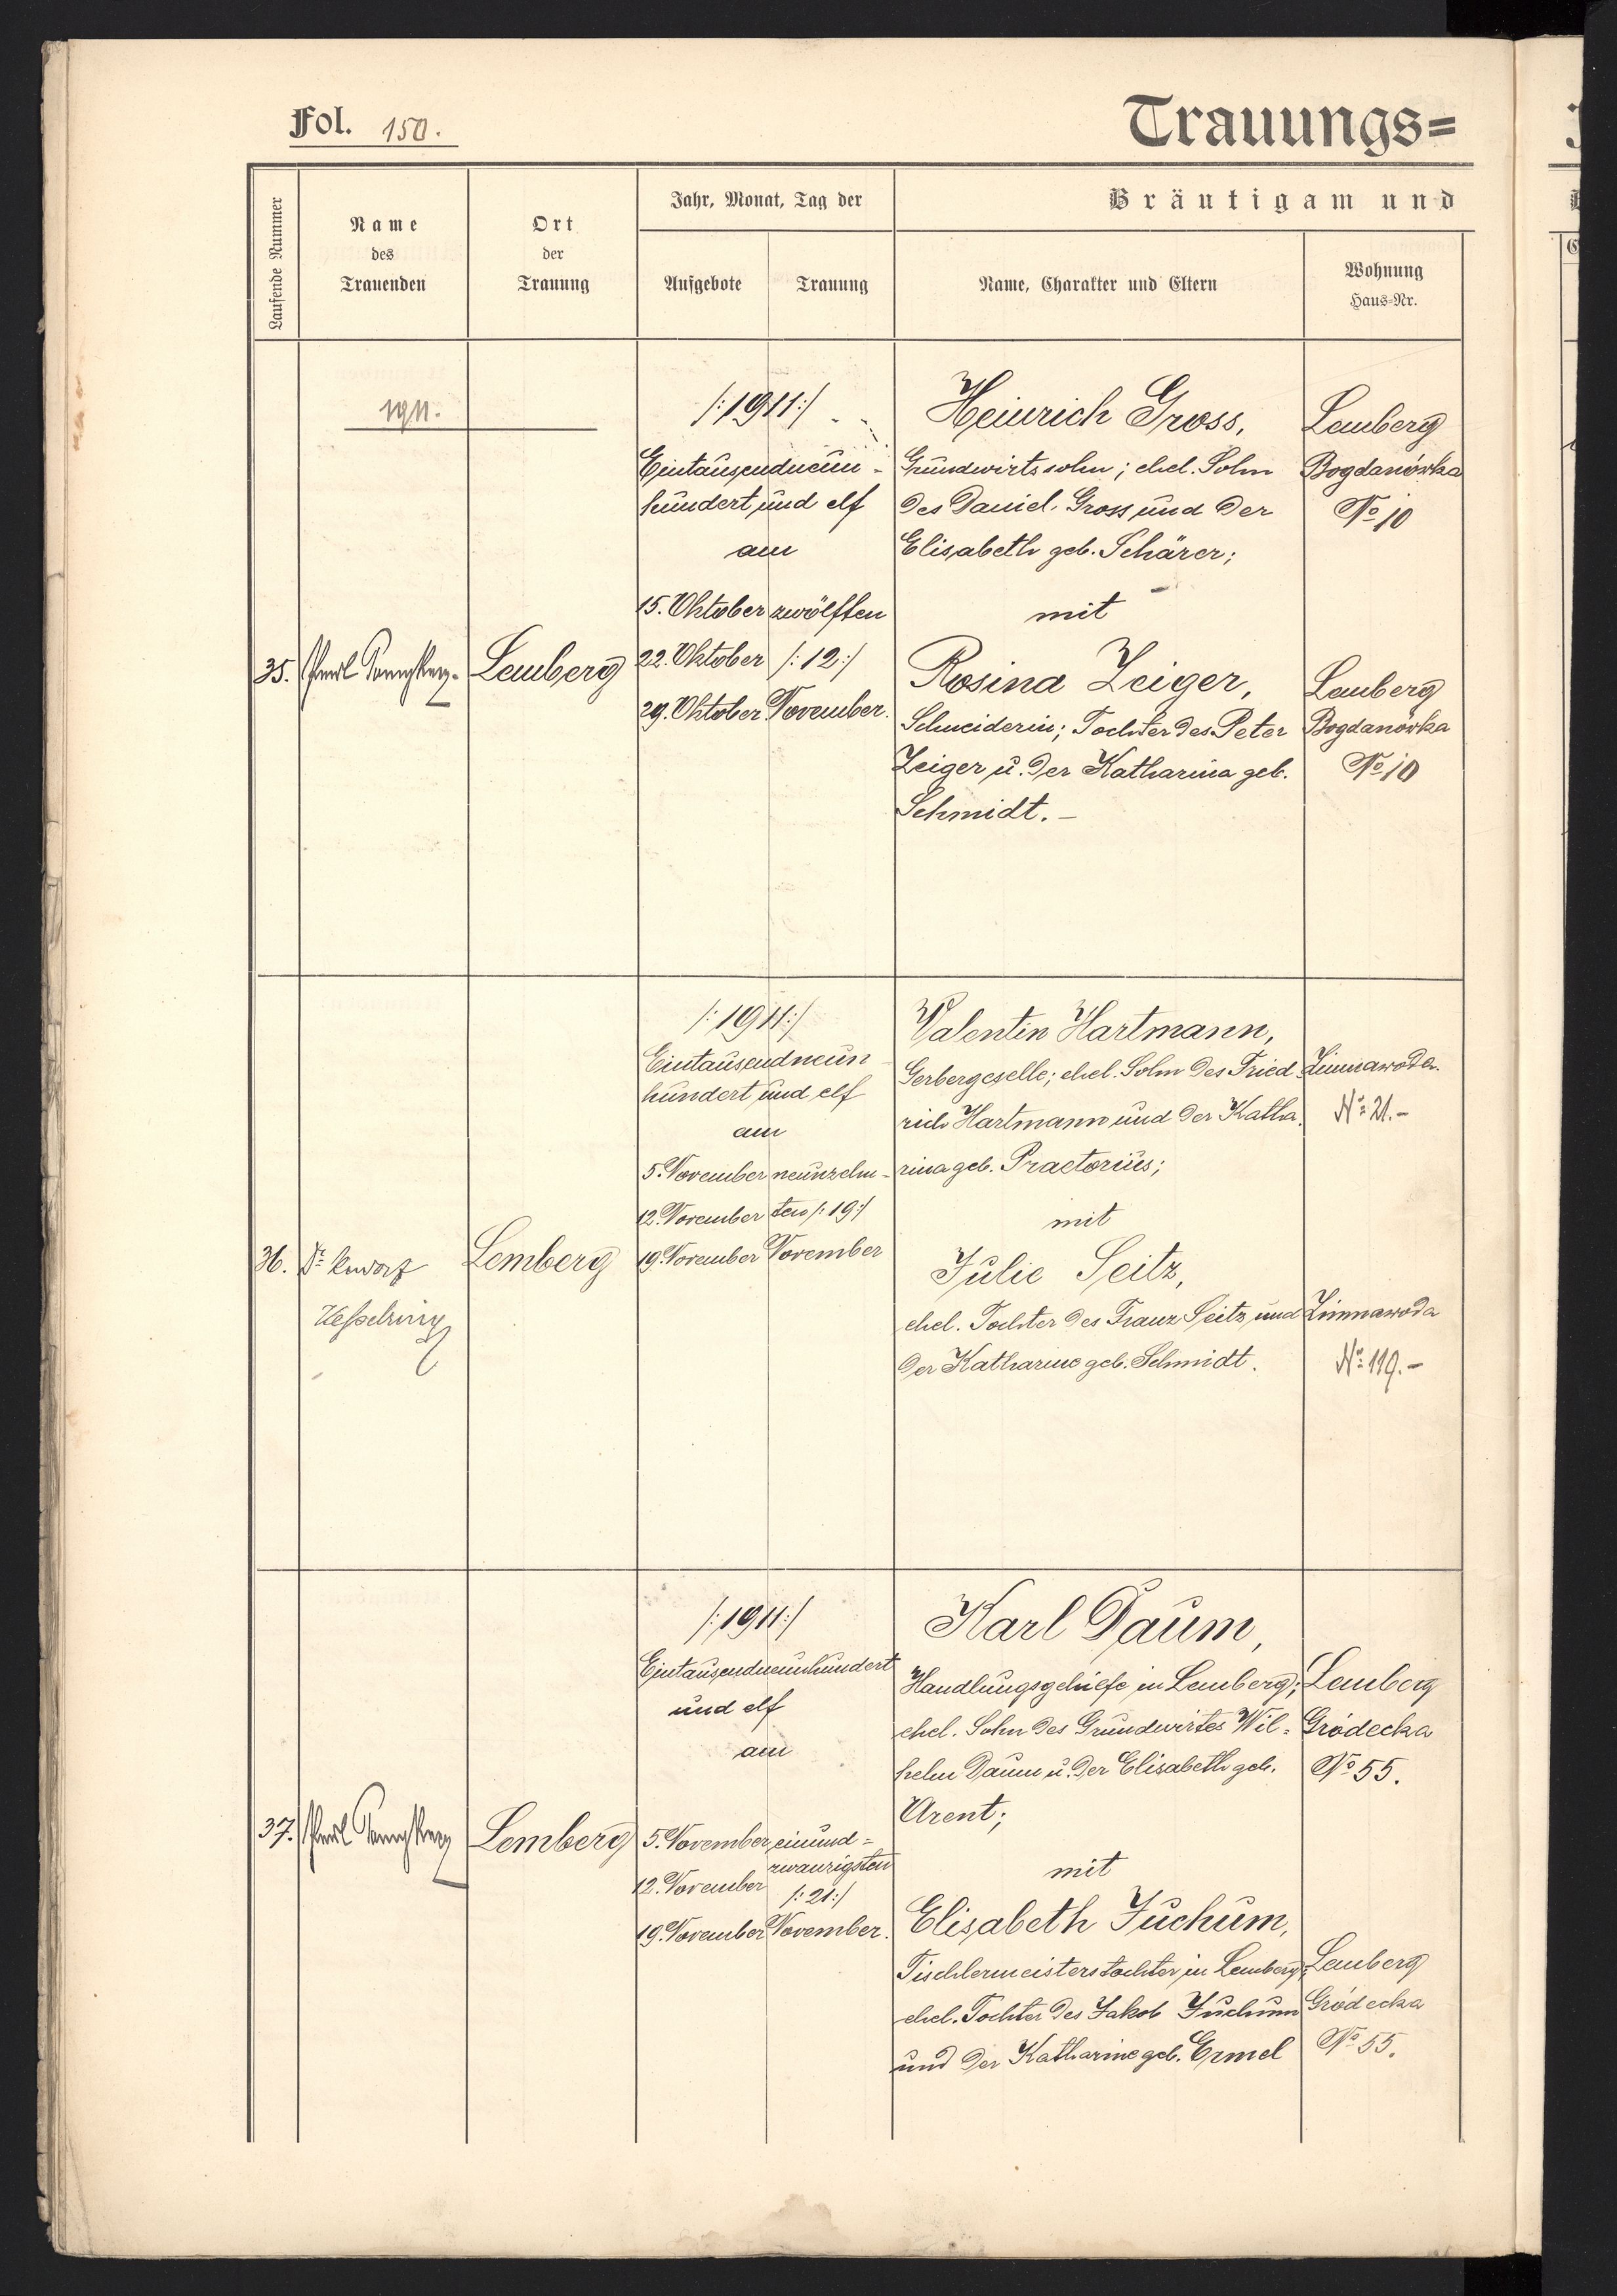 Fol. 150.
Trauungs=
Laufende Nummer
Name
des
Trauenden
Ort
der
Trauung
Jahr, Monat, Tag der
Aufgebote
Trauung
Bräutigam und
Name, Charakter und Eltern
Wohnung
Haus=Nr.
1911.
35.
Lemberg
/:1911:/
Eintausendneun-
hundert und elf
am
15. Oktober
22. Oktober
29. Oktober
zwölften
/:12:/
November.
Heinrich Gross,
Grundwirtssohn; ehel. Sohn
des Daniel Gross und der
Elisabeth geb. Schärer;
mit
Rosina Zeiger,
Schneiderin; Tochter des Peter
Zeiger u. der Katharina geb.
Schmidt. –
Lemberg
Bogdanówka
No 10
Lemberg
Bogdanówka
No 10
36.
Dr.
Kesselring
Lemberg
/:1911:/
Eintausendneun
hundert und elf
am
5. November
12. November
19. November
neunzehn-
ten /:19:/
November
Valentin Hartmann,
Gerbergeselle; ehel. Sohn des Fried
rich Hartmann und der Katha
rina geb. Praetorius;
mit
Julie Seitz,
ehel. Tochter des Franz Seitz und
der Katharine geb. Schmidt.
Zimnawoda
No 21.-
Zimnawoda
No 119.-
37.
Lemberg
/:1911:/
Eintausendneunhundert
und elf
am
5. November
12. November
19. November
einund=
zwanzigsten
/:21:/
November.
Karl Daum,
Handlungsgehilfe in Lemberg;
ehel. Sohn des Grundwirtes Wil=
helm Daum u. der Elisabeth geb.
Arent;
mit
Elisabeth Juchum,
Tischlermeisterstochter in Lemberg;
ehel. Tochter des Jakob Juchum
und der Katharine geb. Ermel
Lemberg
Gródecka
No 55.
Lemberg
Gródecka
No 55.